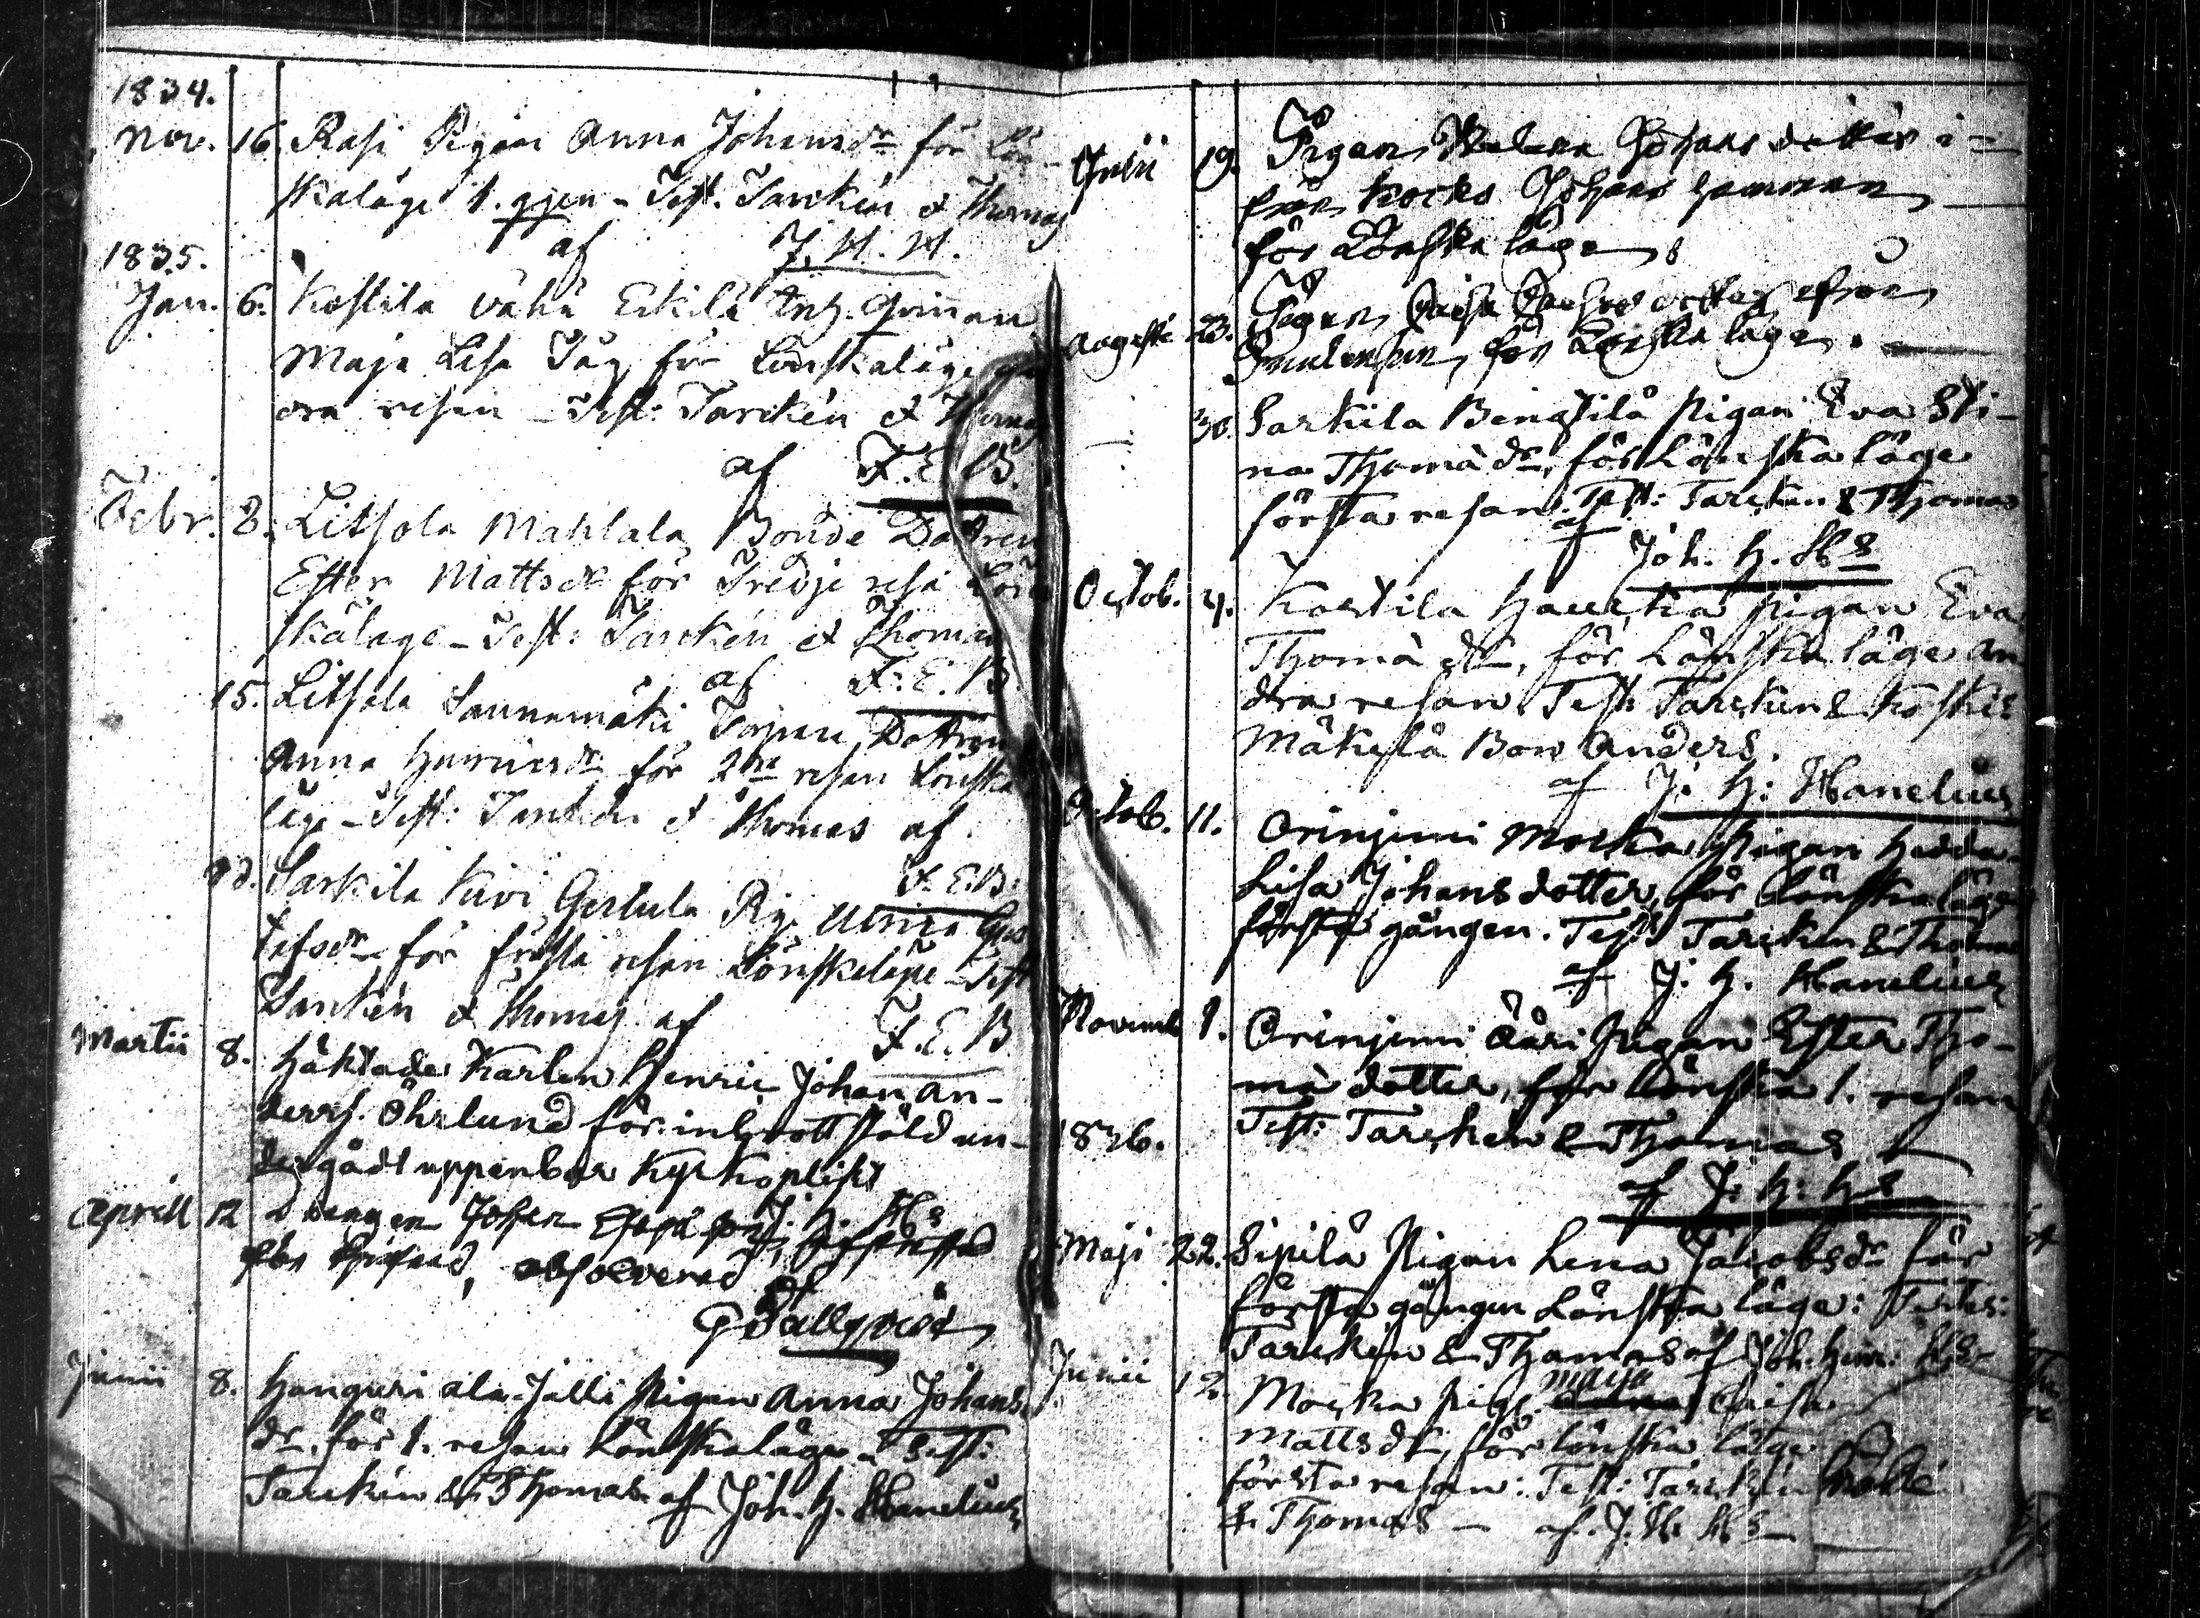 1834.
Nov. 16. Rasi Pigan Anna Johansdr för Lön-
skaläge 1. ggen - Test. Tarckén & Thomas
af J. H. H.
1835.
Jan. 6. Kostila Vähä Eskilä Enk. Qvinnan
Maja Lisa för Lönskaläge
dra resan - Test: Tarckén & Thomas
af F. E. B.
Febr. 8. Litsola Mahlala Bonde Dottren
Ester Mattsdr för Tredje resa Lön
skaläge - Test: Tarckén & Thomas
af F. E. B.
15. Litsola Saunamäki Torpare Dottren
Anna Henricsdr för 2dra resan Lönska
läge - Test: Tarckén & Thomas af
F. E. B.
Sarkila Kivi Gertula Pig. Ulrica Gus
tafsdr för första resan Lönskaläge - Test
Tarckén & Thomas af F. E. B
Martii 8. Häktade Karlen Henric Johan An-
derss. Öhrlund för inbrott stöld un-
dergådt uppenbar Kyrkoplikt
J. H. Hs
Aprill 12 Drängen Johan
för absolverad
af
G Dallqvist
Junii 8. Hanguri ala-Jalli Pigan Anna Johans
dr. för 1. resan Lönskaläge - Test:
Tarckén & Thomas af Joh. H. Hanelius
Julii 19. Pigan Helena Johans dotter i-
från Kocko Johans
för Lönska läge
Augusti 23. Pigan Caisa dotter ifrån
för Lönska läge.
30. Sarkila Bengtilä Pigan Eva Sti-
na Thomä dr, för Lönska läge
första resan. Test: Tarcken & Thomas
af Joh. H. Hs
Octob. 4. Kostila Haucka Pigan Eva
Thomä dr, för Lönska läge an
dra resan Test: Tarcken & Koski:
Mäkylä Bon Anders.
af J: H: Hanelius
Octob. 11. Orinjemi Mocka Pigan Hedda
Lisa Johansdotter, för Lönskaläge
första gången. Test: Tarcken & Thomas
af J. H. Hanelius
Novemb 1. Orinjemi Ääri Pigan Ester Tho-
mä dotter, för Lönska 1. resan
Test: Tarcken & Thomas
af J: H: Hs
1836.
Maji 22. Sipilä Pigan Lena Jacobsdr för
första gången Lönska läge: Testes:
Tarckén & Thomas af Joh. Henr: Hs
Junii 12. Mocka Pig. Maja Caisa
Mattsdr, för lönska läge
första resan: Test: Tarckén
& Thomas - af. J. H. Hs